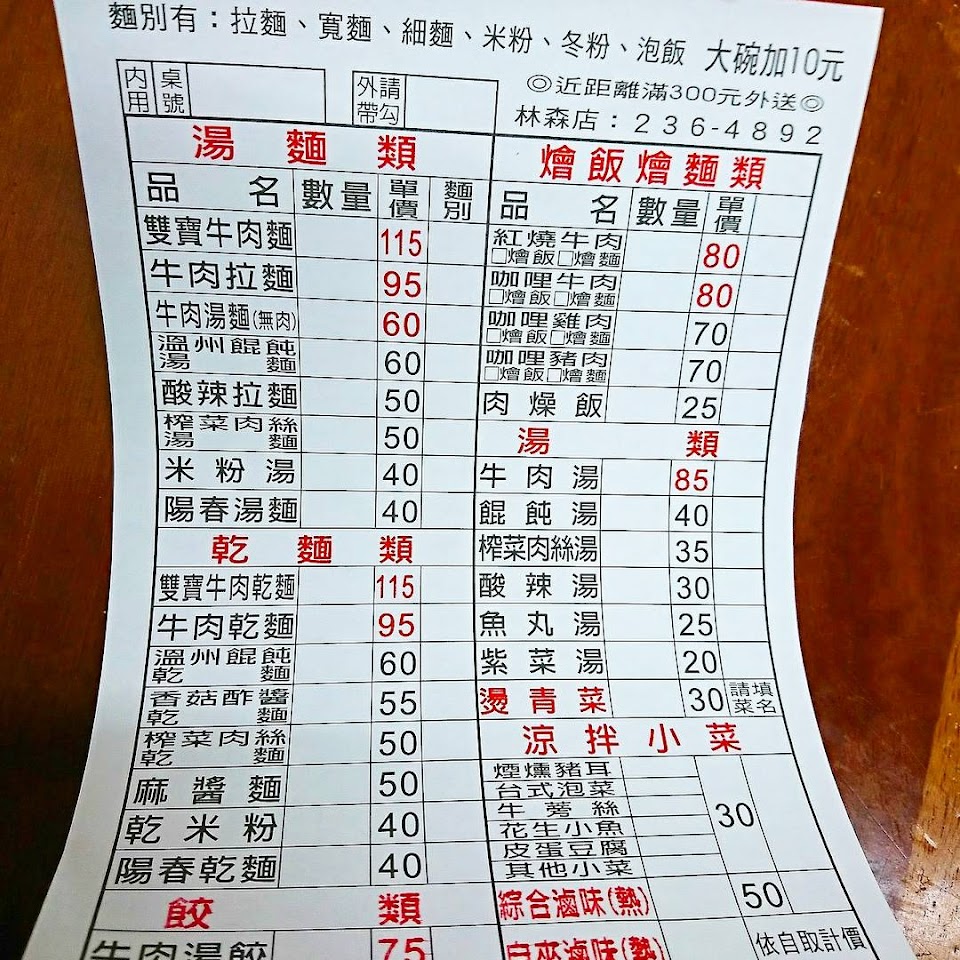 麵別有：拉麵、寬麵、細麵、米粉、冬粉、泡飯 大碗加10元
內用 桌號 外帶 請勾 ◎近距離滿300元外送◎
林森店：236-4892
湯麵類
品名 數量 單價 麵別
雙寶牛肉麵 115
牛肉拉麵 95
牛肉湯麵(無肉) 60
溫州餛飩湯麵 60
酸辣拉麵 50
榨菜肉絲湯麵 50
米粉湯 40
陽春湯麵 40
乾麵類
雙寶牛肉乾麵 115
牛肉乾麵 95
溫州餛飩乾麵 60
香菇酢醬乾麵 55
榨菜肉絲乾麵 50
麻醬麵 50
乾米粉 40
陽春乾麵 40
餃類
牛肉湯餃 75
燴飯燴麵類
品名 數量 單價
紅燒牛肉 □燴飯□燴麵 80
咖哩牛肉 □燴飯□燴麵 80
咖哩雞肉 □燴飯□燴麵 70
咖哩豬肉 □燴飯□燴麵 70
肉燥飯 25
湯類
牛肉湯 85
餛飩湯 40
榨菜肉絲湯 35
酸辣湯 30
魚丸湯 25
紫菜湯 20
燙青菜 30 請填菜名
涼拌小菜
煙燻豬耳
台式泡菜
牛蒡絲
花生小魚
皮蛋豆腐
其他小菜
30
綜合滷味(熱) 50
自夾滷味(熱) 依自取計價